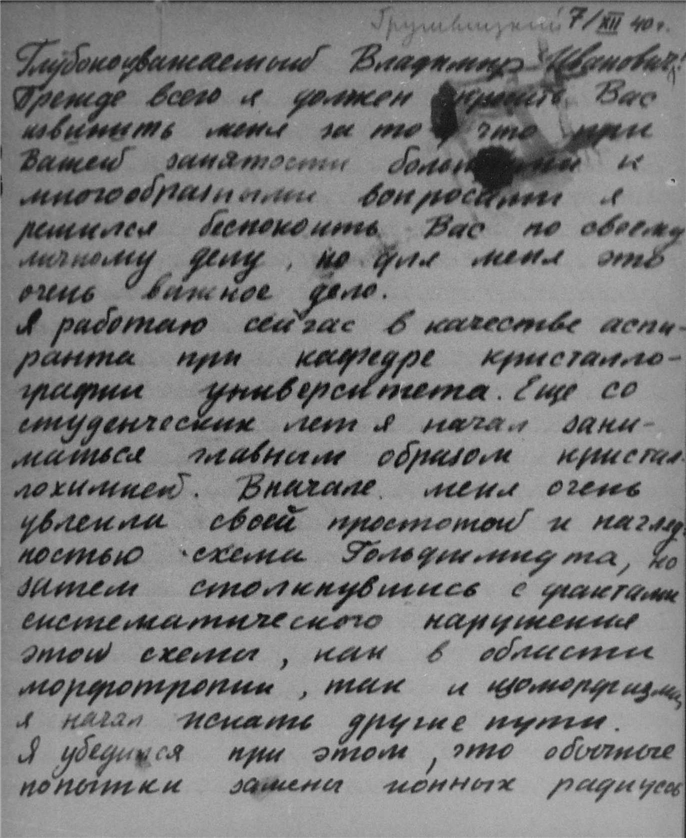 Грушвицкий 7/XII 40 г.
Глубокоуважаемый Владимир Иванович!
Прежде всего я должен просить Вас
извинить меня за то, что при
Вашей занятости большими и
многообразными вопросами я
решился беспокоить Вас по своему
личному делу, но для меня это
очень важное дело.
Я работаю сейчас в качестве аспи-
ранта при кафедре кристалло-
графии университета. Еще со
студенческих лет я начал зани-
маться главным образом кристал-
лохимией. Вначале меня очень
увлекла своей простотой и нагляд-
ностью схема Гольдшмидта, но
затем столкнувшись с фактами
систематического нарушения
этой схемы, как в области
морфотропии, так и изоморфизма,
я начал искать другие пути.
Я убедился при этом, что обычные
попытки замены ионных радиусов